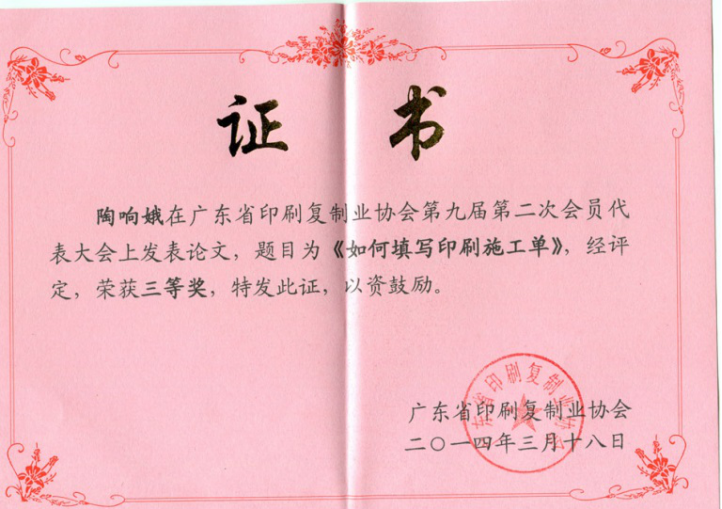 证 书
陶响娥在广东省印刷复制业协会第九届第二次会员代
表大会上发表论文，题目为《如何填写印刷施工单》，经评
定，荣获三等奖，特发此证，以资鼓励。
广东省印刷复制业协会
二〇一四年三月十八日
广东省印刷复制业协会